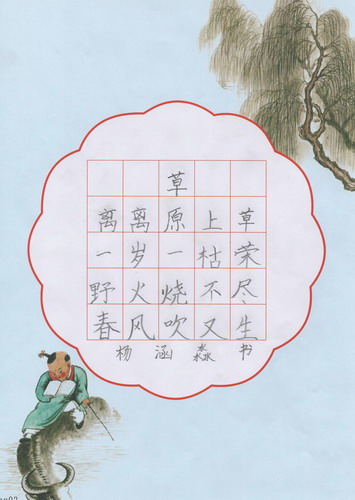 草
离离原上草
一岁一枯荣
野火烧不尽
春风吹又生
杨涵淼书